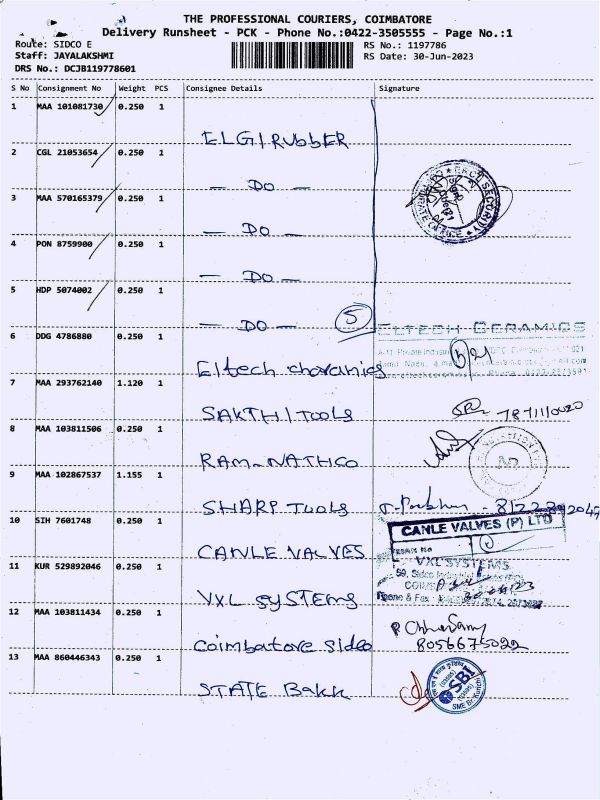 THE PROFESSIONAL COURIERS, COIMBATORE
Delivery Runsheet - PCK - Phone No.:0422-3505555 - Page No.:1
Route: SIDCO E
RS No.: 1197786
Staff: JAYALAKSHMI
RS Date: 30-Jun-2023
DRS No.: DCJB119778601
S No Consignment No Weight PCS Consignee Details Signature
1 MAA 101081730 0.250 1
ELGI RUbbER
2 CGL 21053654 0.250 1
— DO —
3 MAA 570165379 0.250 1
— DO —
4 PON 8759900 0.250 1
— DO —
5 HDP 5074002 0.250 1
— DO — 5
ELTECH CERAMICS
6 DDG 4786880 0.250 1
Eltech
7 MAA 293762140 1.120 1
SAKTHI TOOLS
8 MAA 103811506 0.250 1
RAM-NATHCO
9 MAA 102867537 1.155 1
SHARP TOOLS
10 SIH 7601748 0.250 1
CANLE VALVES (P) LTD
CANLE VALVES
11 KUR 529892046 0.250 1
VXL SYSTEMS
VXL SYSTEMS
12 MAA 103811434 0.250 1
Coimbatore Sidco
8056675022
13 MAA 860446343 0.250 1
STATE Bakk
SBI